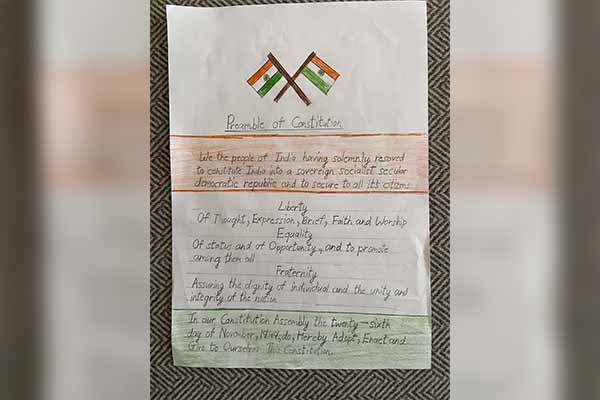 Preamble of Constitution
We the people of India having solemnly resoved
to constitute India into a sovereign socialist secular
democratic republic and to secure to all itt citizens
Liberty
Of Thought, Expression, Brief, Faith and Worship
Equality
Of status and of Opportunity, and to promote
among them all
Fraternity
Assuring the dignity of individual and the unity and
integrity of the nation
In our Constitution Assembly the twenty-sixth
day of November, 1949, do, Hereby Adopt, Enact and
Give to Ourselves This Constitution.